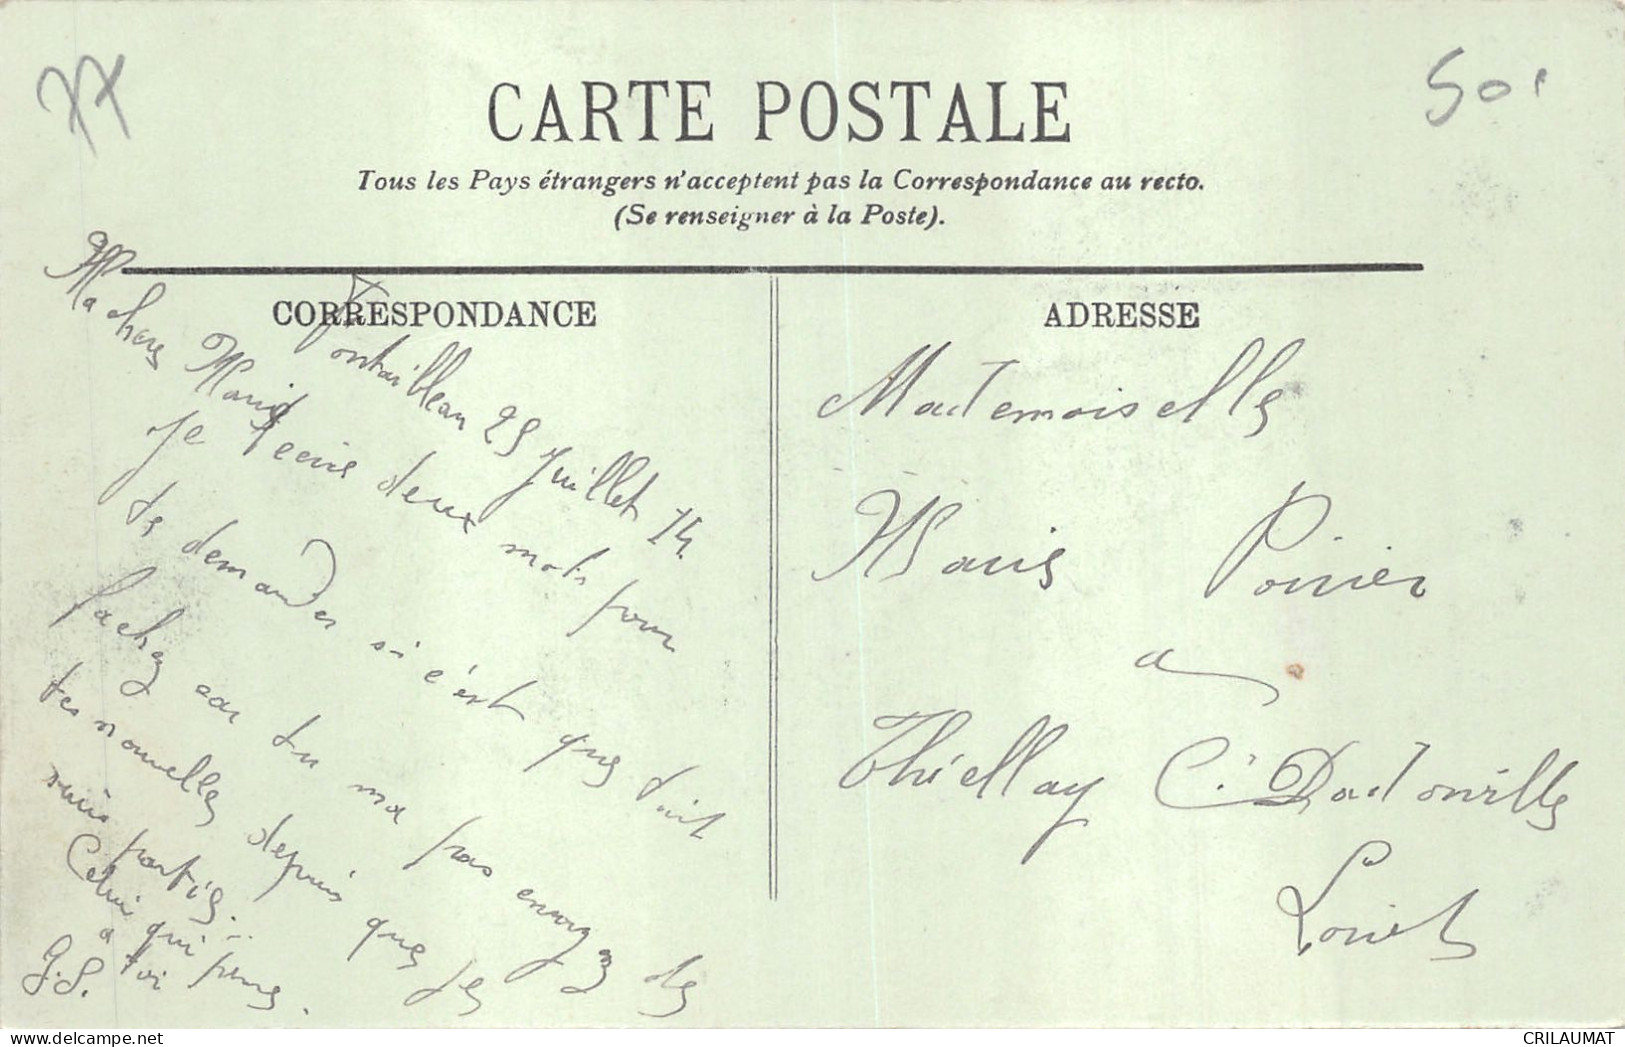 77
50
CARTE POSTALE
Tous les Pays étrangers n'acceptent pas la Correspondance au recto.
(Se renseigner à la Poste).
CORRESPONDANCE
Fontaibleau 25 Juillet 14
Ma chere Marie
Je t'ecris deux mots pour
te demander si c'est que tu
fachez car tu ma pas envoyez de
tes nouvelles depuis que je
suis partie.
Celui qui pense
a toi
G. S.
ADRESSE
Mademoiselle
Marie Poirier
a
Thiellay C. Dadonville
Loiret
CRILAUMAT